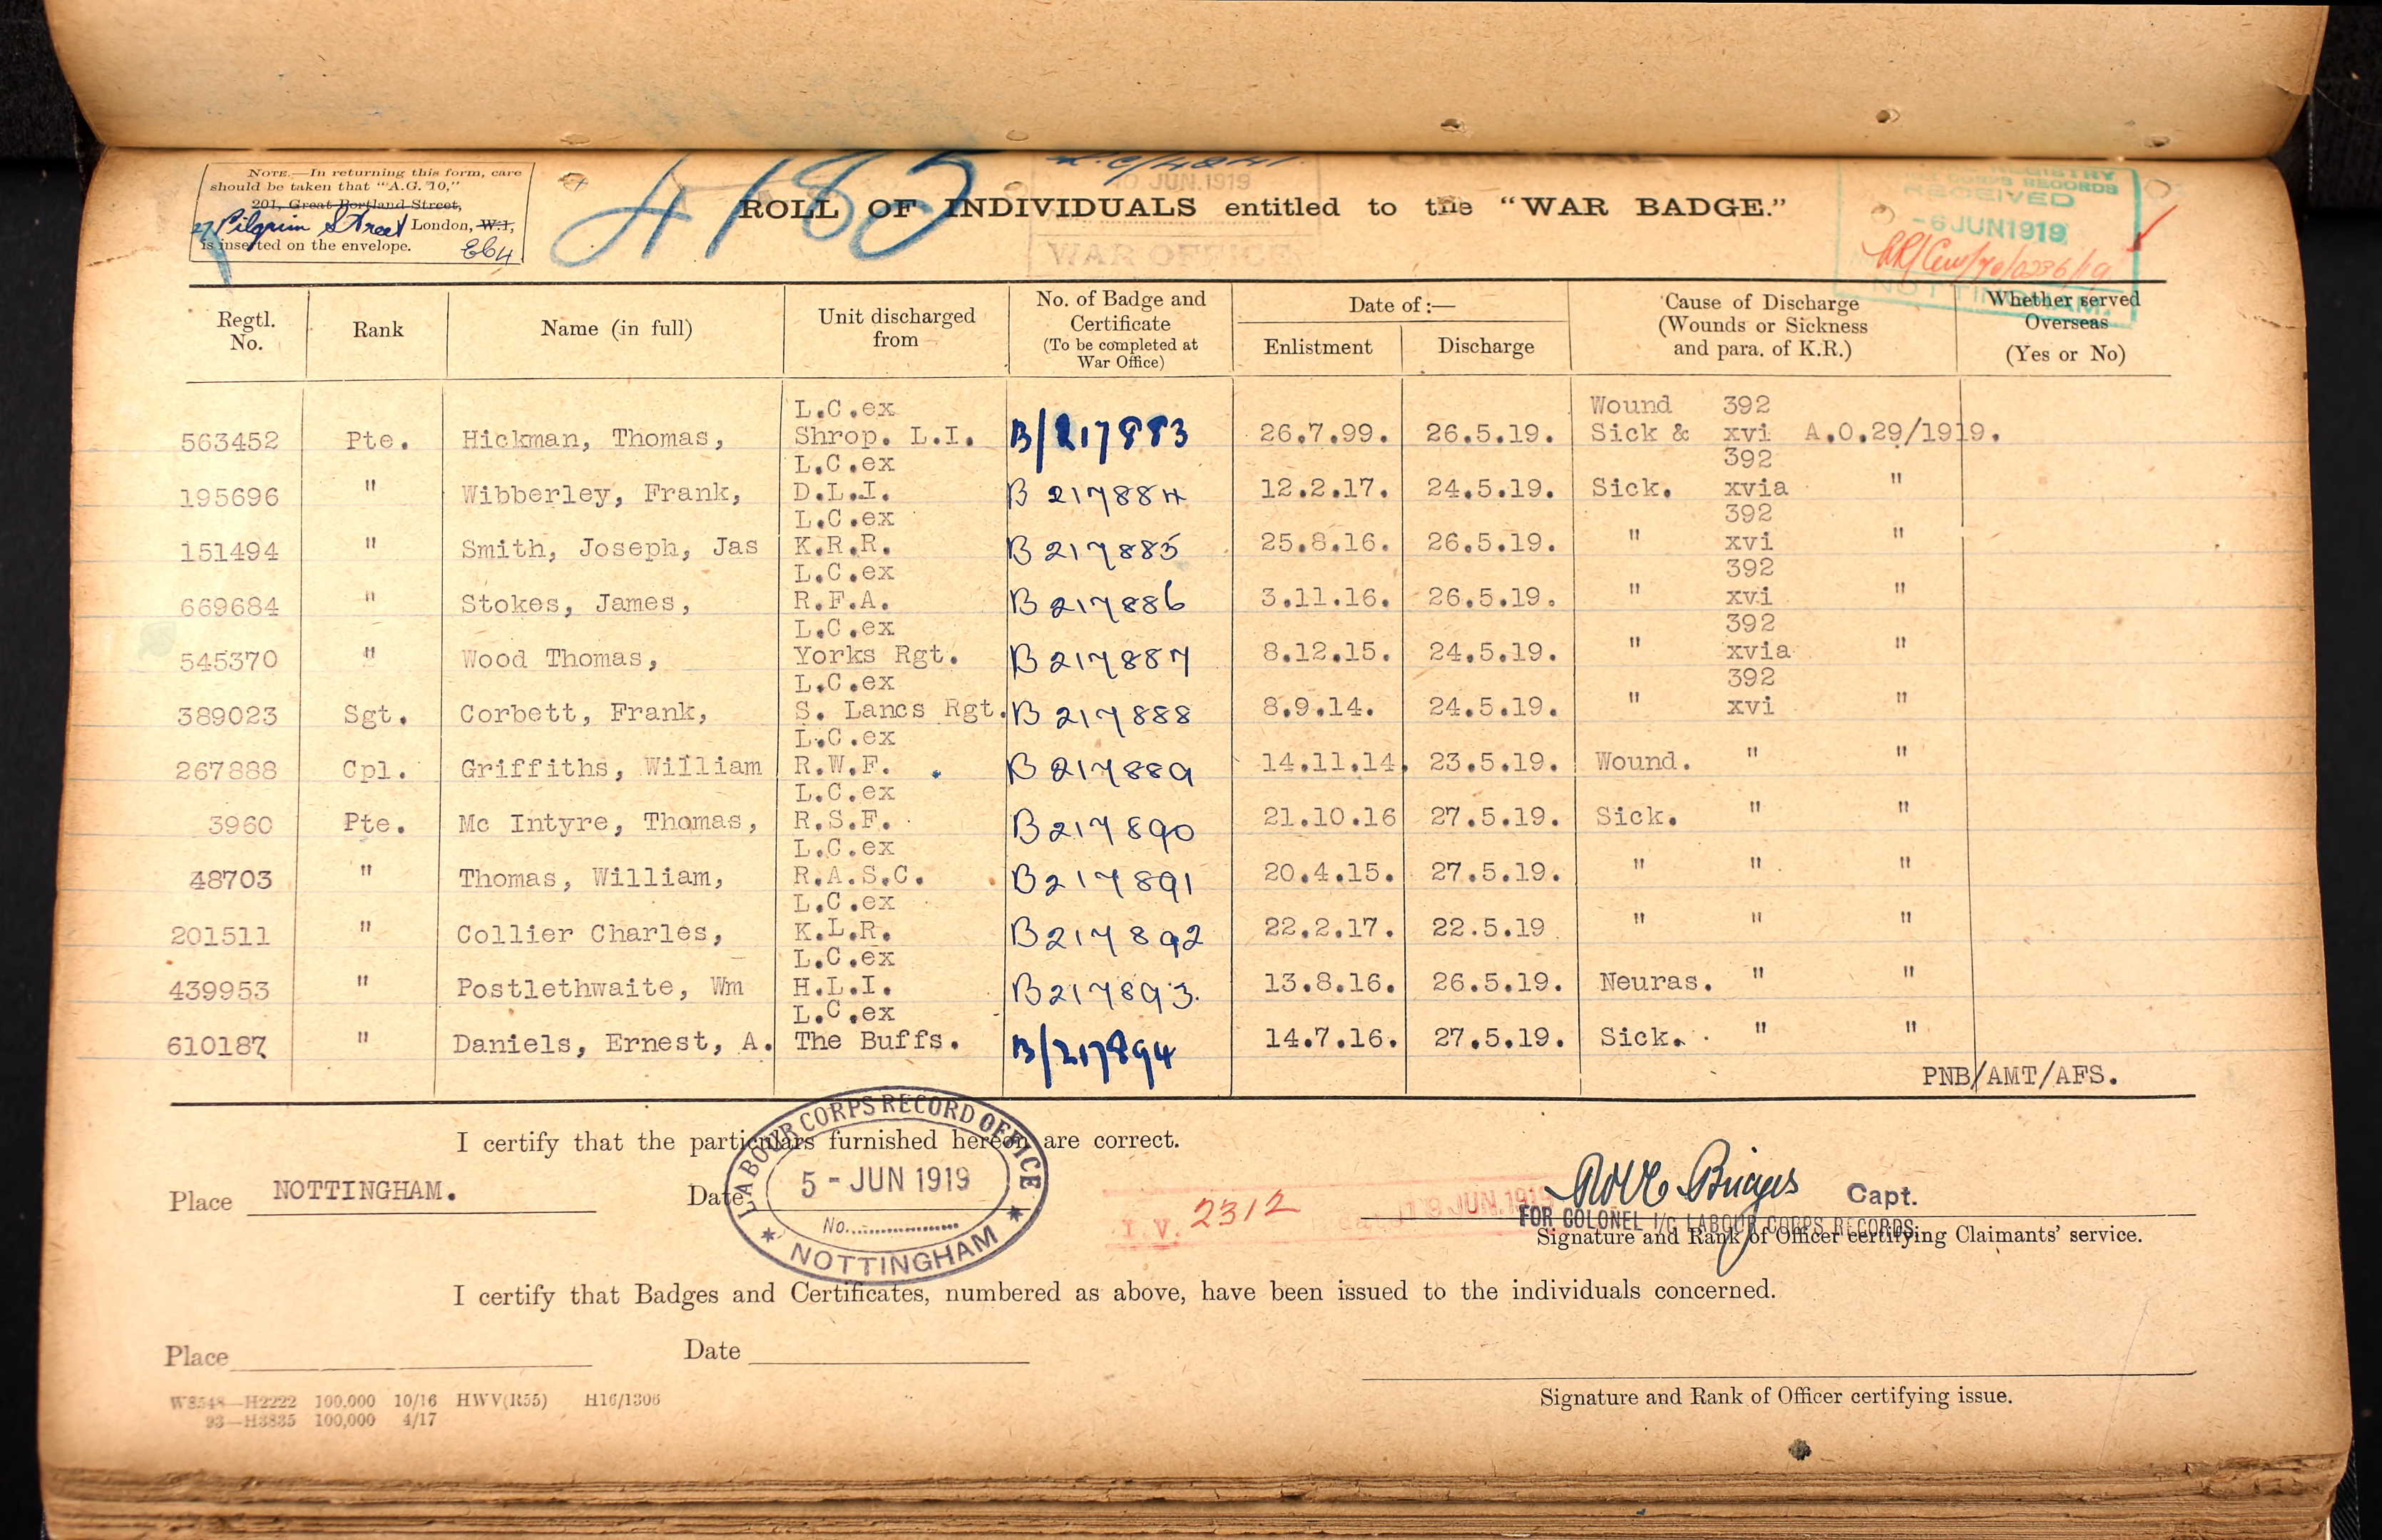 NOTE.—In returning this form, care
should be taken that "A.G. 10,"
201, Great Portland Street,
27 Pilgrim Street London, W.1,
is inserted on the envelope. EC4
4185
L.C/4841.
10 JUN.1919
WAR OFFICE
ORIGINAL
REGISTRY
CORPS RECORDS
RECEIVED
-6 JUN 1919
NOTTINGHAM.
ROLL OF INDIVIDUALS entitled to the "WAR BADGE."
Regtl. No. Rank Name (in full) Unit discharged from No. of Badge and Certificate (To be completed at War Office) Date of:— Enlistment Discharge Cause of Discharge (Wounds or Sickness and para. of K.R.) Whether served Overseas (Yes or No)
L.C.ex Wound 392
563452 Pte. Hickman, Thomas, Shrop. L.I. B/217883 26.7.99. 26.5.19. Sick & xvi A.O.29/1919.
L.C.ex 392
195696 " Wibberley, Frank, D.L.I. B 217884 12.2.17. 24.5.19. Sick. xvia "
L.C.ex 392
151494 " Smith, Joseph, Jas K.R.R. B 217885 25.8.16. 26.5.19. " xvi "
L.C.ex 392
669684 " Stokes, James, R.F.A. B 217886 3.11.16. 26.5.19. " xvi "
L.C.ex 392
545370 " Wood Thomas, Yorks Rgt. B 217887 8.12.15. 24.5.19. " xvia "
L.C.ex 392
389023 Sgt. Corbett, Frank, S. Lancs Rgt. B 217888 8.9.14. 24.5.19. " xvi "
L.C.ex
267888 Cpl. Griffiths, William R.W.F. B 217889 14.11.14. 23.5.19. Wound. " "
L.C.ex
3960 Pte. Mc Intyre, Thomas, R.S.F. B 217890 21.10.16 27.5.19. Sick. " "
L.C.ex
48703 " Thomas, William, R.A.S.C. B 217891 20.4.15. 27.5.19. " " "
L.C.ex
201511 " Collier Charles, K.L.R. B 217892 22.2.17. 22.5.19 " " "
L.C.ex
439953 " Postlethwaite, Wm H.L.I. B 217893. 13.8.16. 26.5.19. Neuras. " "
L.C.ex
610187 " Daniels, Ernest, A. The Buffs. B/217894 14.7.16. 27.5.19. Sick. " "
PNB/AMT/AFS.
I certify that the particulars furnished hereon are correct.
Place NOTTINGHAM. Date
LABOUR CORPS RECORD OFFICE
5 - JUN 1919
No.
NOTTINGHAM
I.V. 2312
JUN.1919
Briggs Capt.
FOR COLONEL I/C LABOUR CORPS RECORDS.
Signature and Rank of Officer certifying Claimants' service.
I certify that Badges and Certificates, numbered as above, have been issued to the individuals concerned.
Place Date
Signature and Rank of Officer certifying issue.
W8548—H2222 100,000 10/16 HWV(R55) H16/1306
93—H3835 100,000 4/17